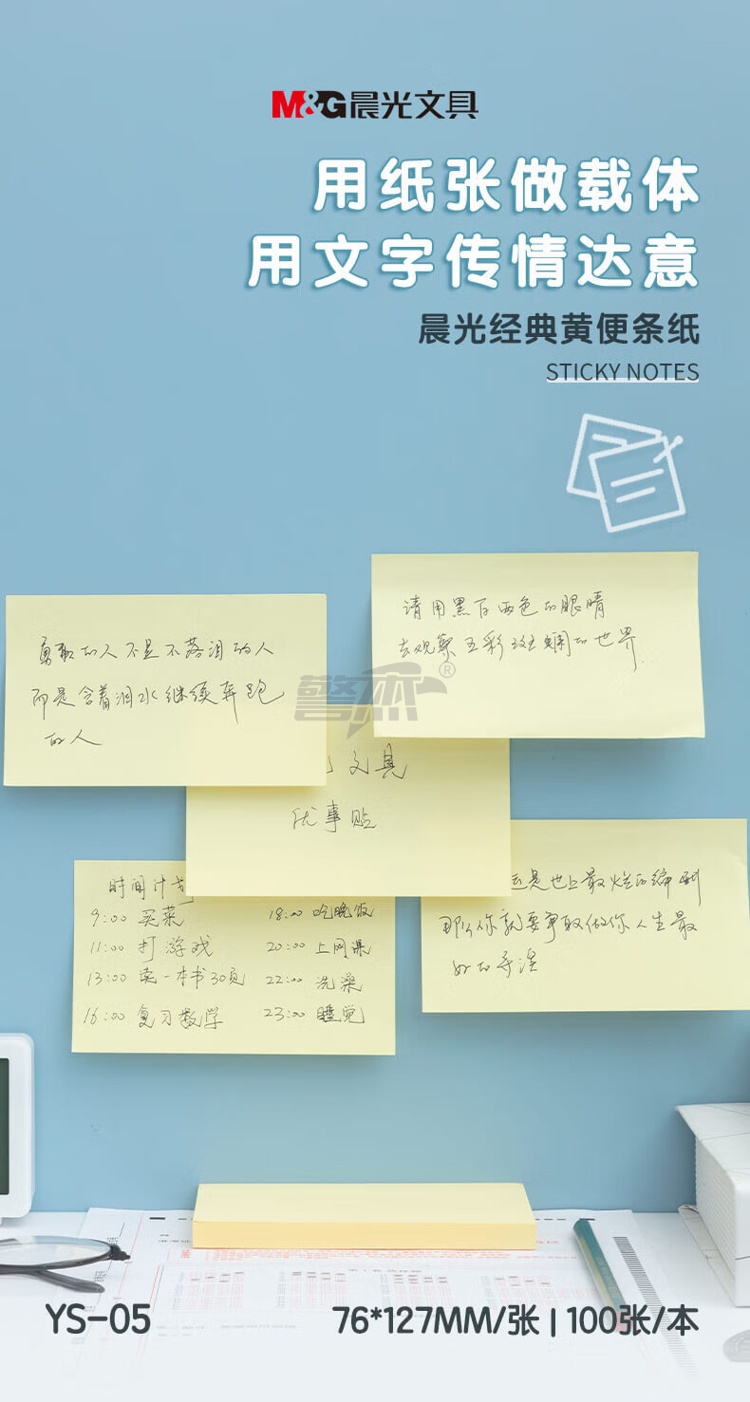 M&G晨光文具
用纸张做载体
用文字传情达意
晨光经典黄便条纸
STICKY NOTES
勇敢的人不是不落泪的人
而是含着泪水继续奔跑
的人
请用黑白两色的眼睛
去观察五彩斑斓的世界
警杰®
文具
优事贴
时间计划
9:00 买菜
11:00 打游戏
13:00 读一本书30页
16:00 复习数学
18:00 吃晚饭
20:00 上网课
22:00 洗澡
23:00 睡觉
是世上最烂的编剧
那么你就要争取做你人生最
好的导演
YS-05
76*127MM/张 | 100张/本